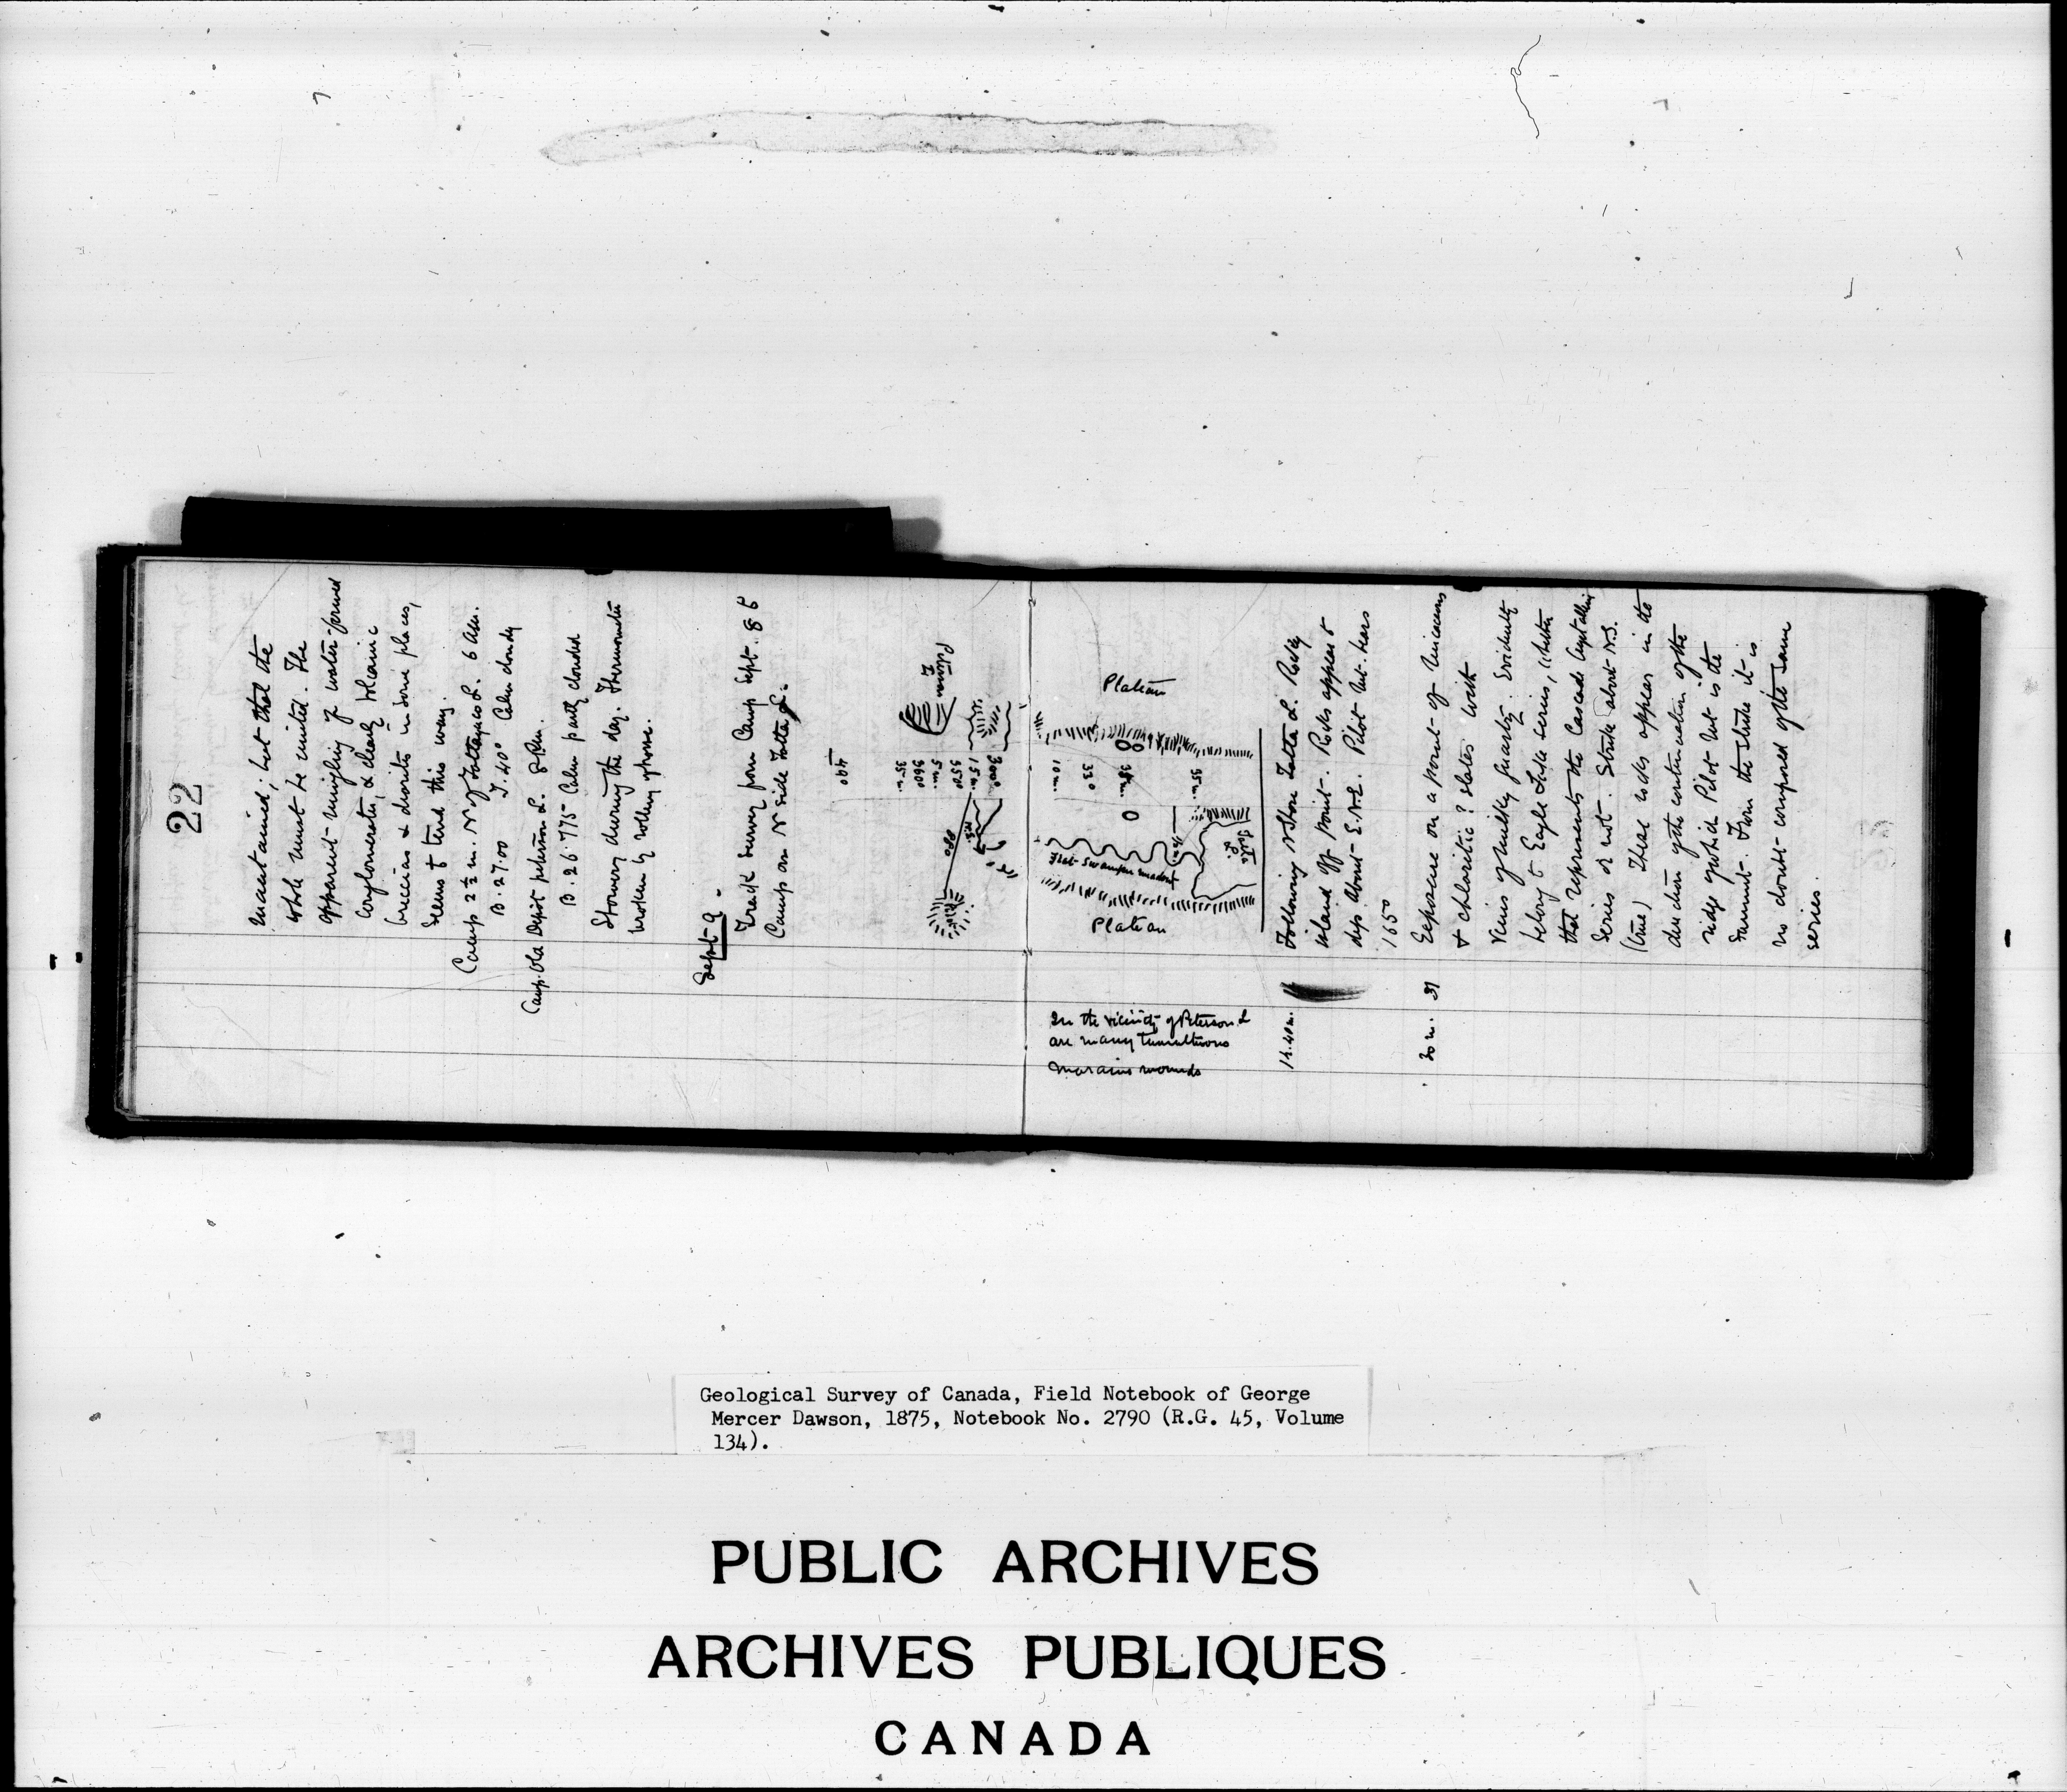 22
maintained, but that the
whole must be united. The
apparent mingling of water-formed
conglomerates, & clearly volcanic
breccias & diorites in some places,
seems to tend this way.
Camp 2½ m. N of L. 6 am.
B. 27.00 T. 40° Calm cloudy
Camp. Old Depot Peterson L. 8 P.m.
B. 26.775 Calm partly clouded
Showery during the day. Thermometer
broken by rolling
Sept 9.
Track survey from Camp Sept. 8 to
Camp on N side Tatla L.
400
35 m.
360
5 m.
350
15 m.
300
Peterson L
080
10 m.
330
35 m.
Plateau
Flat Swampy meadow
Plateau
Tatla L.
In the vicinity of Peterson L
are many tumultuous
moraine mounds
1h.40m.
Following N Shore Tatla L. Rocky
island off point. Rocks appear to
dip about E.N.E. Pilot Mt. bears
165°
20 m. 31
Exposure on a point of micaceous
& chloritic? slates with
veins of milky quartz. Evidently
belong to Eagle Lake series, whether
that represents the Cascade Crystalline
series or not. Strike about N.S.
(true) These rocks appear in the
direction of the continuation of the
ridge of which Pilot Mt is the
summit. From the strike it is
no doubt composed of the same
series.
Geological Survey of Canada, Field Notebook of George
Mercer Dawson, 1875, Notebook No. 2790 (R.G. 45, Volume
134).
PUBLIC ARCHIVES
ARCHIVES PUBLIQUES
CANADA